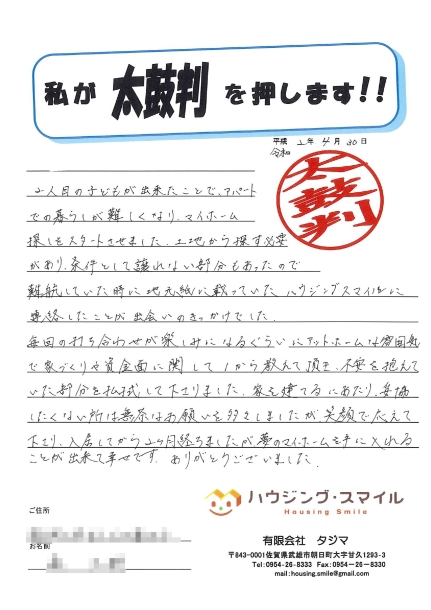 私が 太鼓判 を押します!!
平成 2年 4月 30日
令和
太鼓判
2人目の子どもが出来たことで、アパート
での暮らしが難しくなり、マイホーム
探しをスタートさせました。土地から探す必要
があり、条件として譲れない部分もあったので
難航していた時に地元紙に載っていた ハウジングスマイルさんに
連絡したことが出会いのきっかけでした。
毎回の打ち合わせが楽しみになるぐらいにアットホームな雰囲気
で家づくりや資金面に関して 1から教えて頂き、不安を抱えて
いた部分を払拭して下さりました。家を建てるにあたり、妥協
したくない所は無茶なお願いを多々しましたが笑顔で応えて
下さり、入居してから2ヶ月経ちましたが夢のマイホームを手に入れる
ことが出来て幸せです。ありがとうございました。
ハウジング・スマイル
Housing Smile
ご住所
お名前
有限会社 タジマ
〒843-0001佐賀県武雄市朝日町大字甘久1293-3
Tel:0954-26-8333 Fax:0954-26-8330
mail:housing.smile@gmail.com